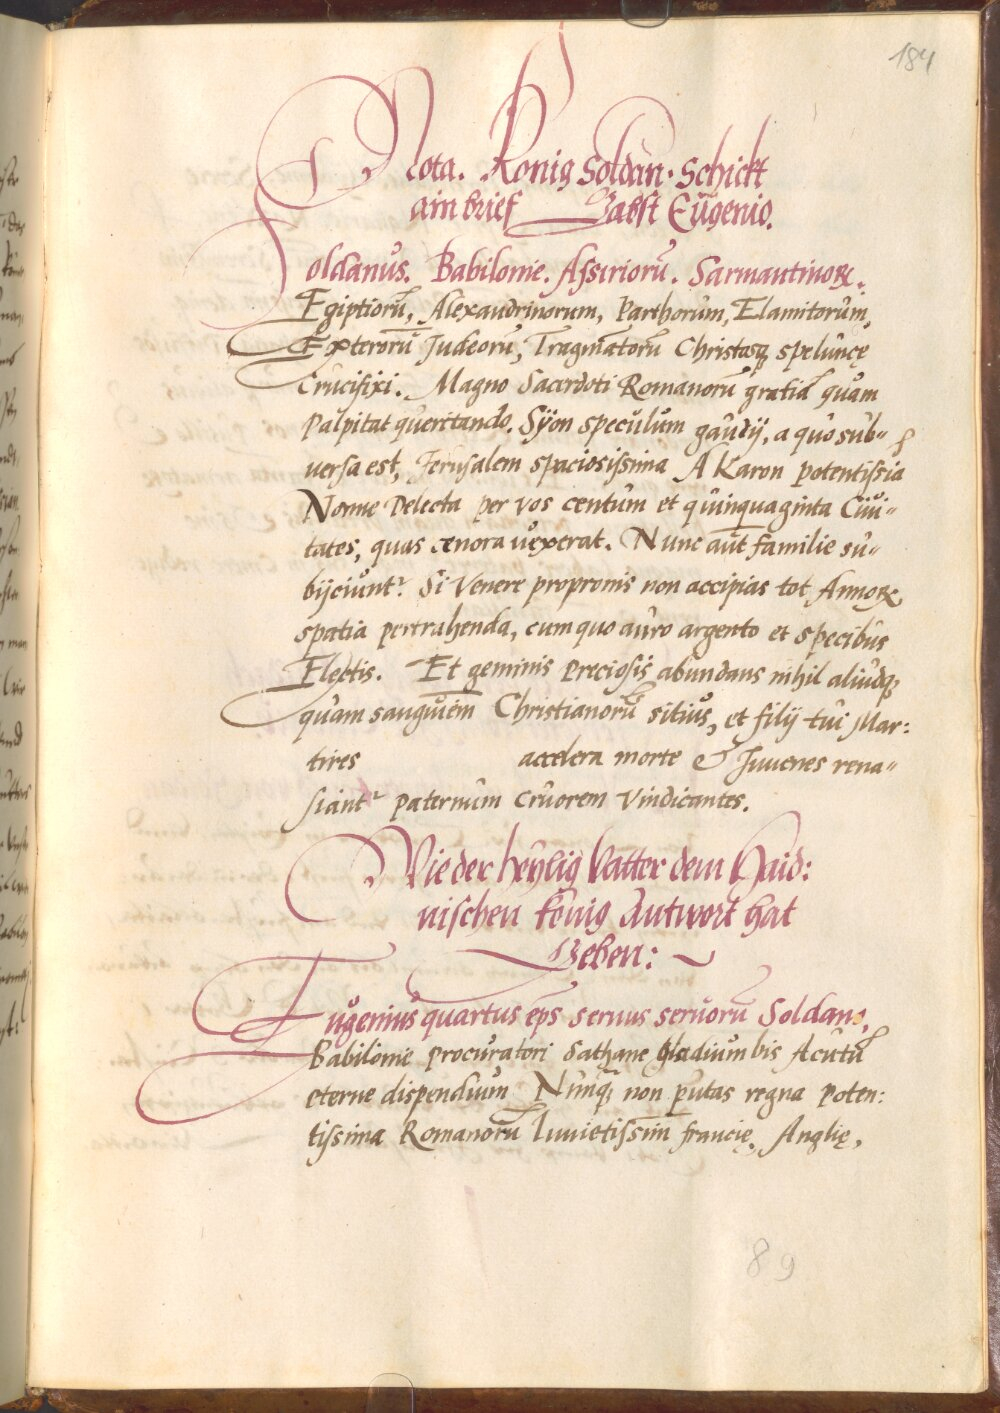 184
Nota. König soldan. schickt
ain brief Babst Eugenio.
Soldanus. Babilonie. Assiriorū. Sarmantinoꝝ.
Egiptiorū, Alexandrinorum, Parthorum, Elamitorum,
Exterorū Judeorū, Tragmatorū Christusq, speluncę
Crucifixi. Magno Sacerdoti Romanorū gratiā quam
palpitat queritando. Syon speculum gaudij, a quo sub-
versa est, Jerusalem spaciosissima A Karon potentissia
Nonne Delecta per vos centum et quinquaginta Ciui-
tates, quas ænora vexerat. Nunc aut familie su-
bijciunt². Si Venere propronis non accipias tot Annoꝝ
spatia pertrahenda, cum quo auro argento et specibus
Electis. Et geminis preciosis abundans nihil aliudq,
quam sanguem Christianorū sitius, et filij tui Mar:
tires accelera morte & Juvenes rena-
siant² paternum cruorem vindicantes.
Wie der heylig Vatter dem Haid:
nischen könig Antwort hat
Geben: ~
Eugenius quartus eps seruus seruorū Soldano,
Babilonie procuratori Sathane gladium bis Acutū
eterne dispendium Nunq, non putas regna poten:
tissima Romanorū Inuictissim francię, Anglię,
89